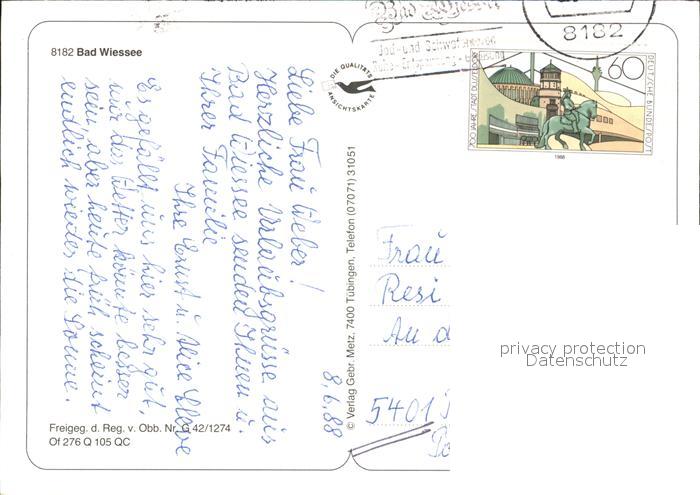 8182 Bad Wiessee
Bad Wiessee
8182
DIE QUALITÄTS
ANSICHTSKARTE
700 JAHRE STADT DÜSSELDORF
60
DEUTSCHE BUNDESPOST
1988
8.6.88
Liebe Frau Weber!
Herzliche Urlaubsgrüsse aus
Bad Wiessee senden Ihnen u.
Ihrer Familie
Ihre Ernst u. Alice
Es gefällt uns hier sehr gut,
nur das Wetter könnte besser
sein, aber heute früh scheint
endlich wieder die Sonne.
© Verlag Gebr. Metz, 7400 Tübingen, Telefon (07071) 31051
Frau
Resi
An d
5401
privacy protection
Datenschutz
Freigeg. d. Reg. v. Obb. Nr. G 42/1274
Of 276 Q 105 QC